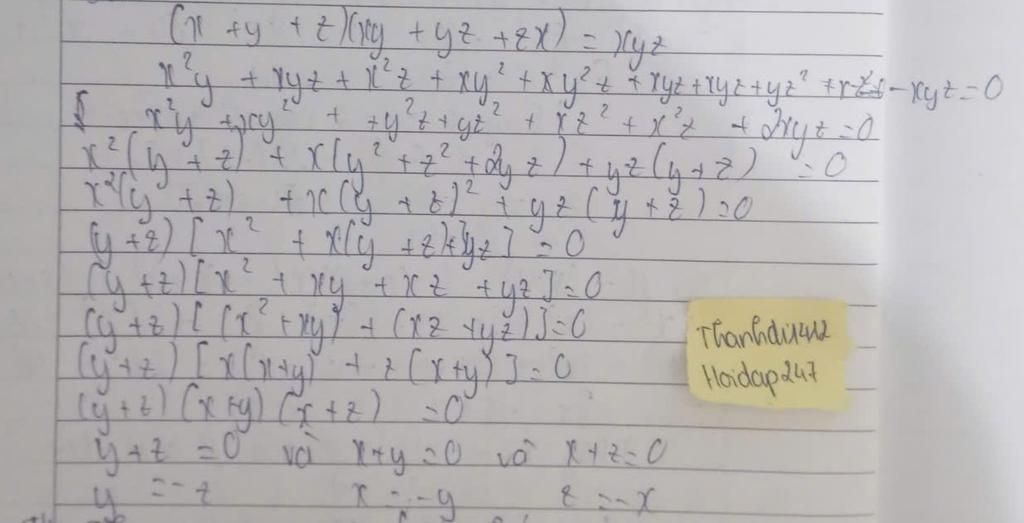 (x + y + z)(xy + yz + zx) = xyz
x²y + xyz + x²z + xy² + xy²z + xyz + xyz + yz² + xz² - xyz = 0
x²y + xy² + + y²z + yz² + xz² + x²z + 2xyz = 0
x²(y + z) + x(y² + z² + 2yz) + yz(y + z) = 0
x²(y + z) + x(y + z)² + yz(y + z) = 0
(y + z)[x² + x(y + z) + yz] = 0
(y + z)[x² + xy + xz + yz] = 0
(y + z)[(x² + xy) + (xz + yz)] = 0
(y + z)[x(x + y) + z(x + y)] = 0
(y + z)(x + y)(x + z) = 0
y + z = 0 và x + y = 0 và x + z = 0
y = - z x = - y z = - x
Hoidap247